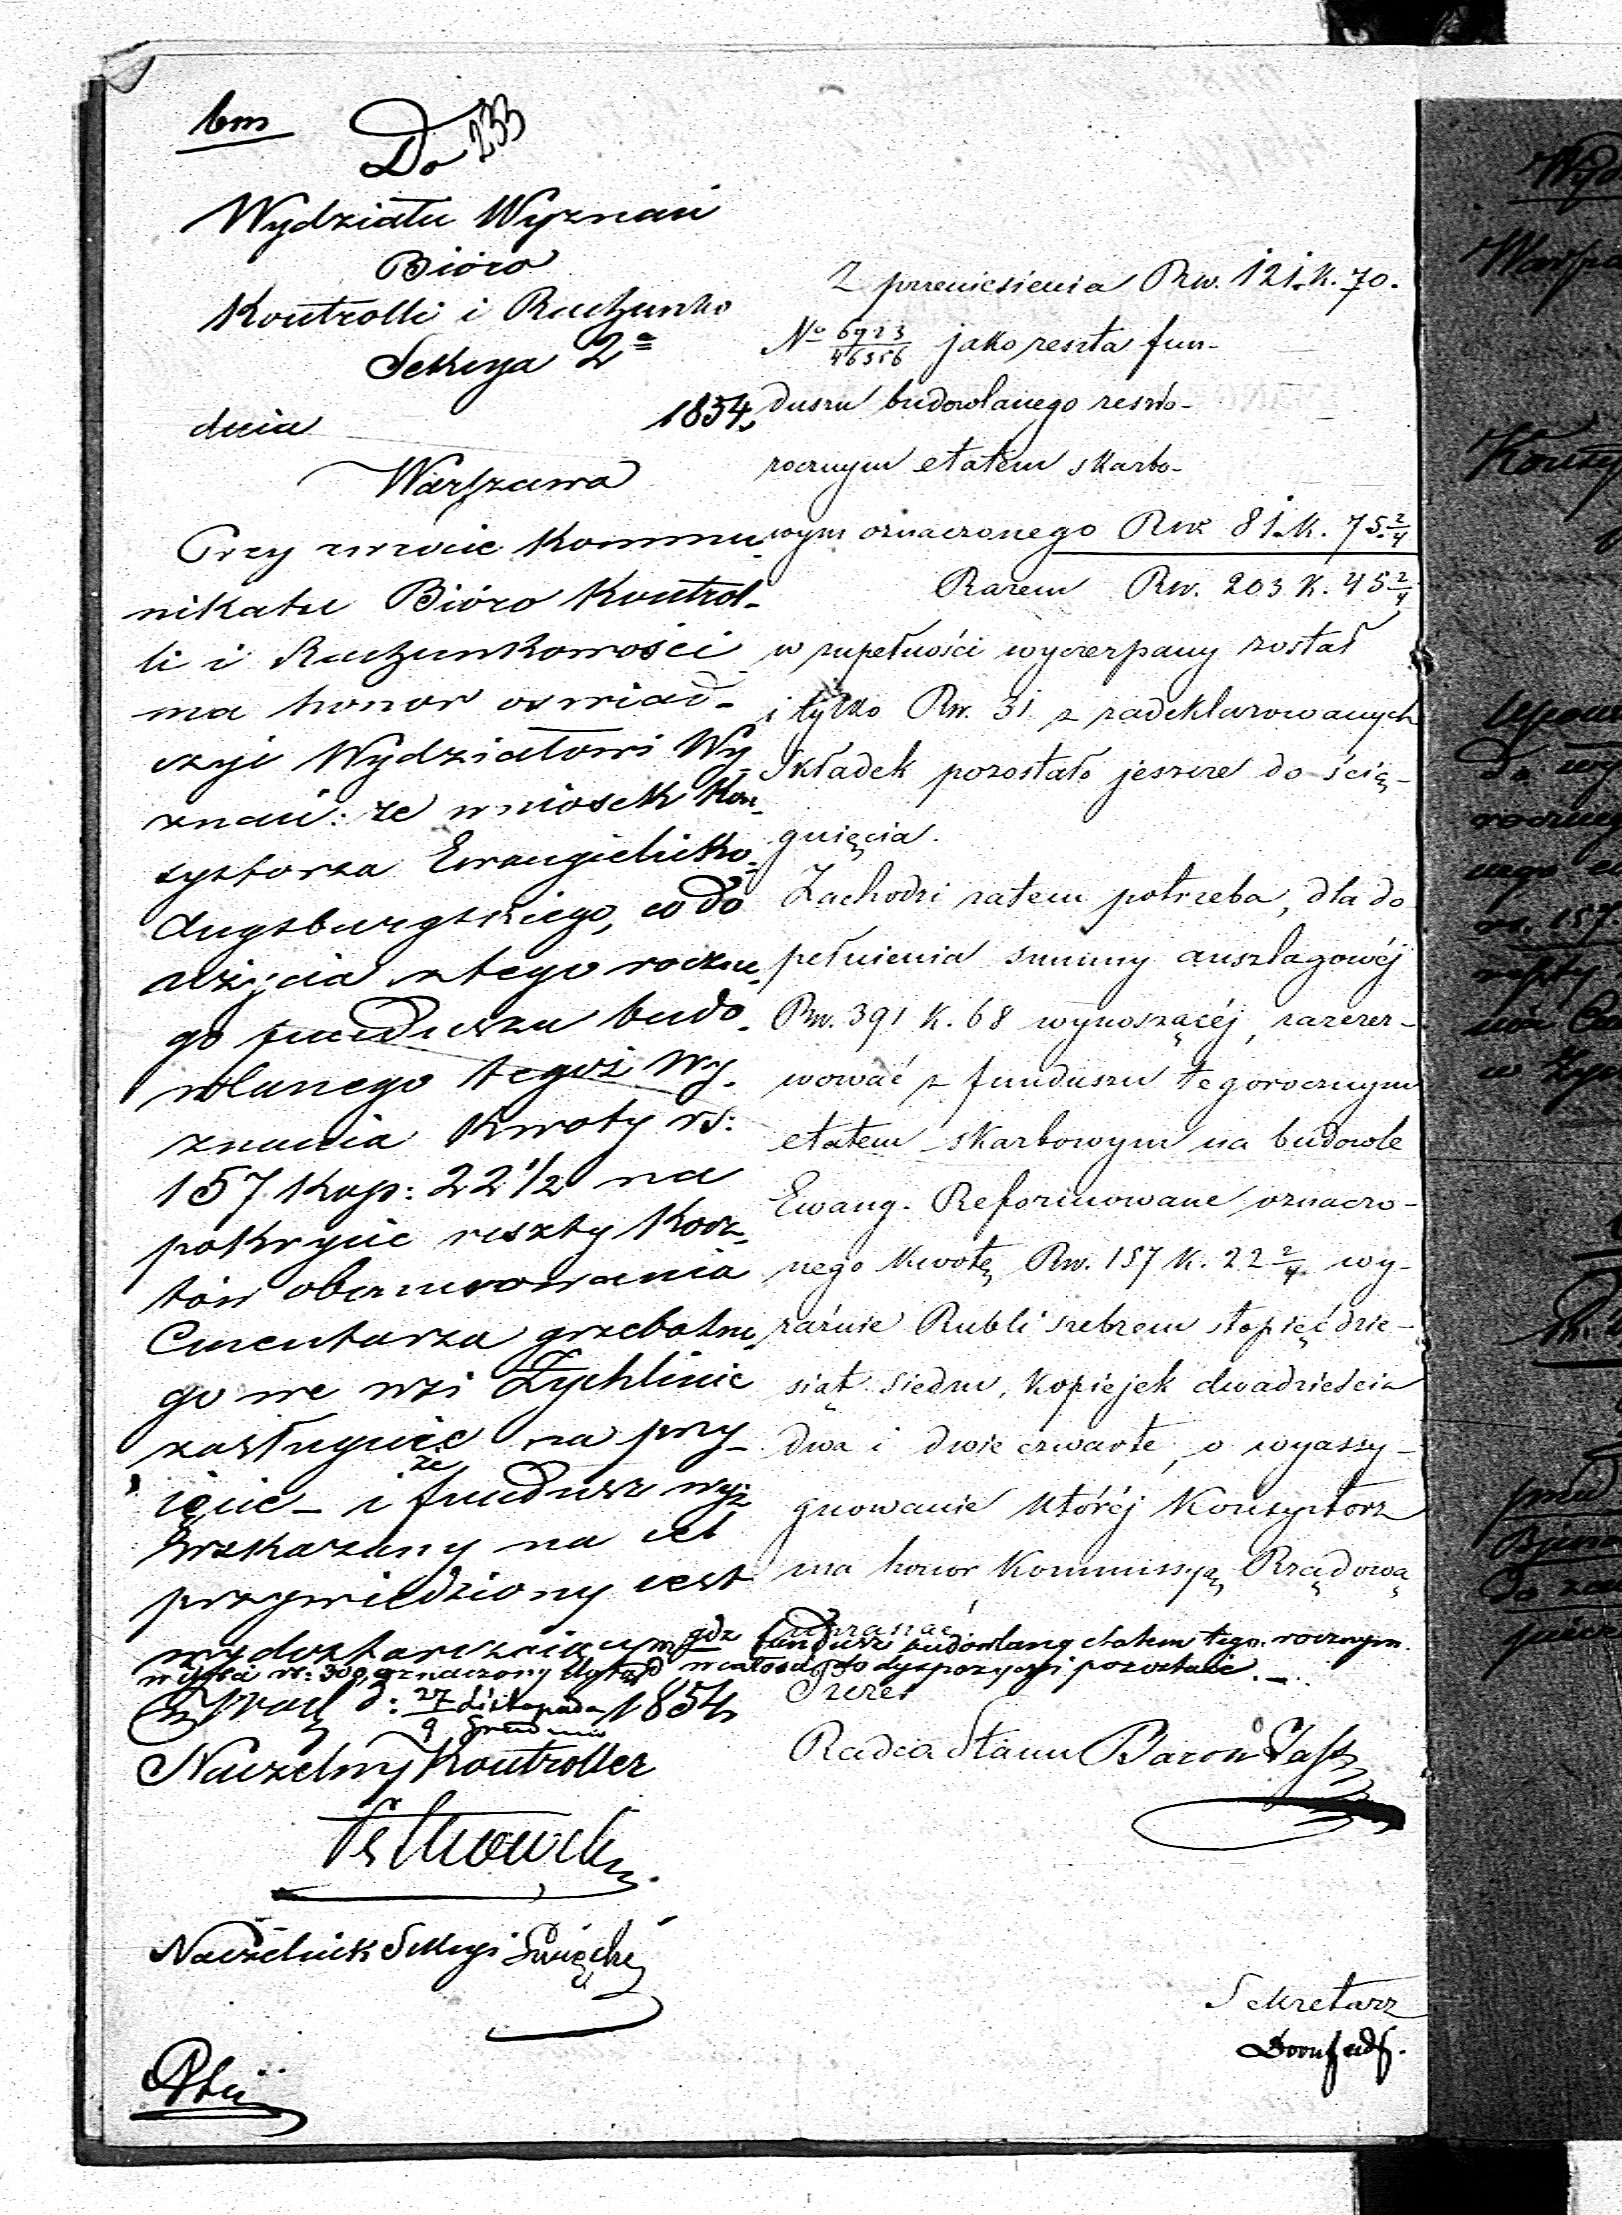 bm
Do
233
Wydziału Wyznań
Bióro
Kontrolli i Rachunko
Sekcya 2ª
dnia 1854.
Warszawa
Przy zwrocie Kommu-
nikatu Bióro Kontrol-
li i Rachunkowości
ma honor oświad-
czyć Wydziałowi Wy-
znań: że wniosek Kon-
systorza Ewangielicko-
Augsburgskiego, co do
użycia z tego roczne-
go funduszu budo-
wlanego tegoż Wy-
znania Kwoty rs:
157 kop: 22 1/2 na
pokrycie reszty Kosz-
tów obmurowania
Cmentarza grzebalne-
go we wsi Żychlinie
zasługuje na przy-
jęcie - i że fundusz wyż
wskazany na cel
przywiedziony jest
wydostarczającym gdz fundusz budowlany etatem tego rocznym
w ilości rs: 300, oznaczony dotąd w całości do dyspozycyi pozostaie. -
d: 27/9 Listopada/Grudnia 1854
Naczelny Kontroller
Naczelnik Sekcyi Święcki
Z przeniesienia Rw. 121. K. 70.
No 6923/46356 jako reszta fun-
duszu budowlanego zeszło-
rocznym etatem skarbo-
wym oznaczonego Rw. 81. K. 75 2/4
Razem Rw. 203 K. 45 2/4
w zupełności wyczerpany został
i tylko Rw. 31 z zadeklarowanych
składek pozostało jeszcze do ścią-
gnięcia.
Zachodzi zatem potrzeba, dla do
pełnienia summy anszlagowéj
Rw. 391 K. 68 wynoszącéj, zarezer-
wować z funduszu tegorocznym
etatem skarbowym na budowle
Ewang. Reformowane oznaczo-
nego kwotę Rw. 157 K. 22 2/4 wy-
raźnie Rubli srebrem stopięćdzie-
siąt siedm, kopiejek dwadzieścia
dwa i dwie czwarte, o wyassy-
gnowanie któréj Konsystorz
ma honor Kommissyę Rządową
upraszać.
Prezes
Radca Stanu Baron
Sekretarz